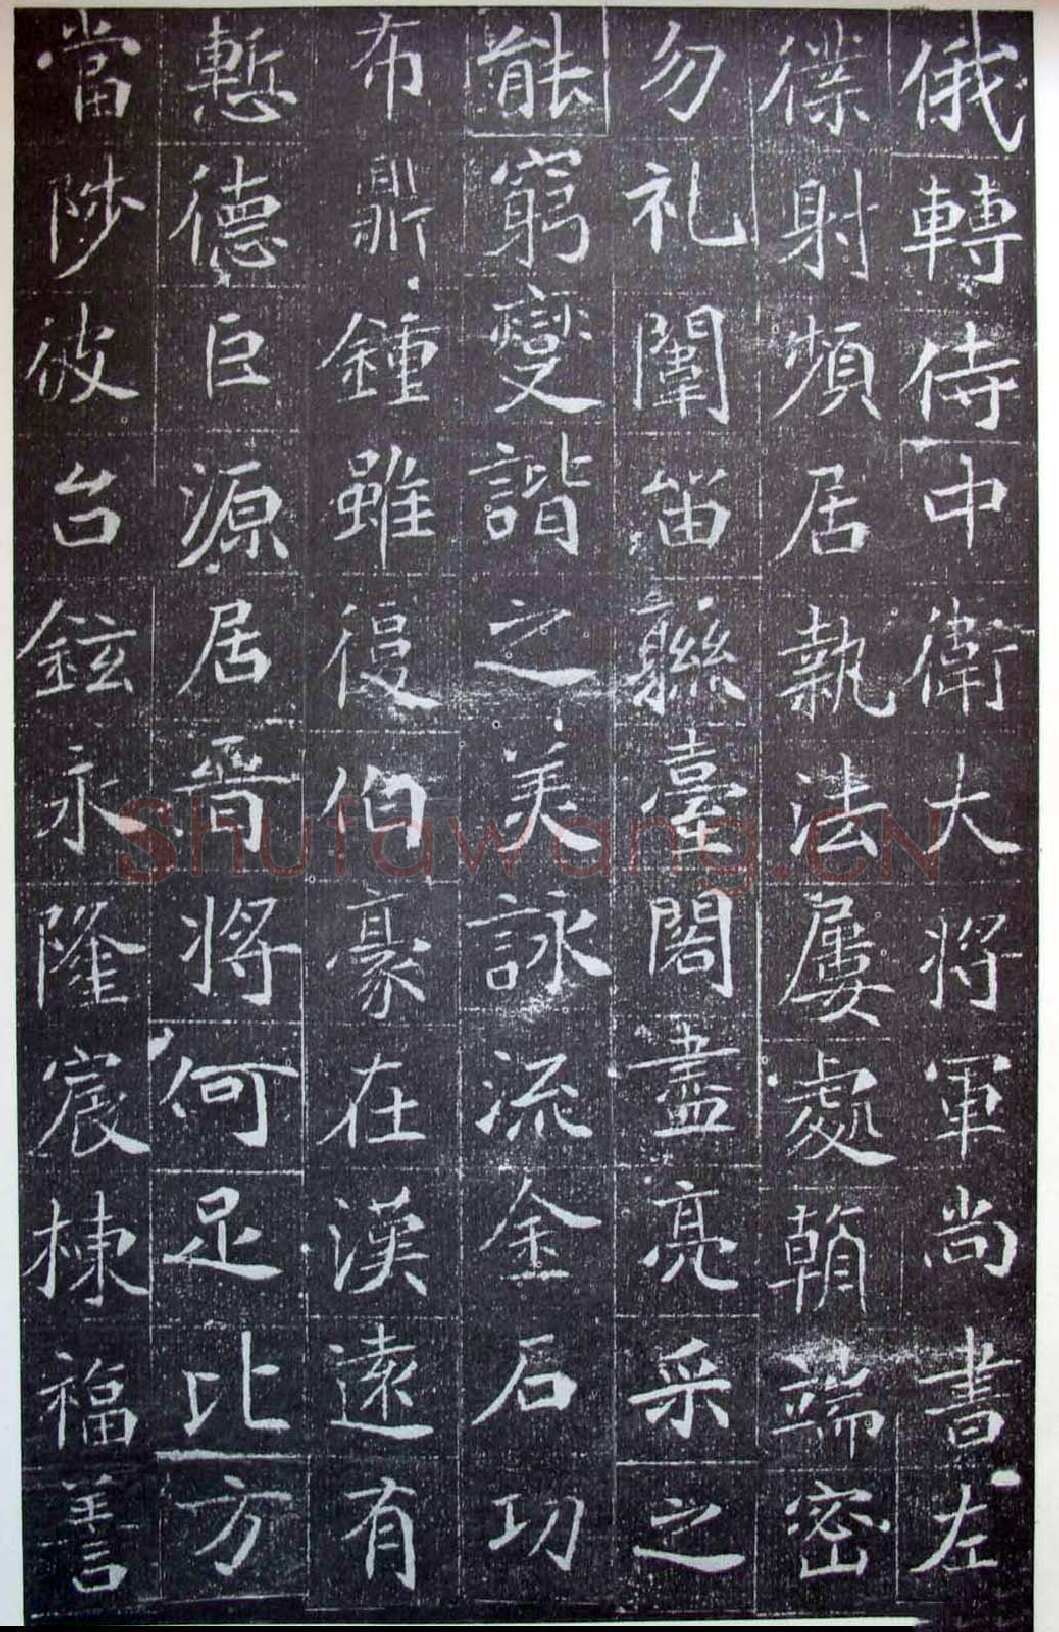 俄轉侍中衛大將軍尚書左
僕射頻居執法屢處朝端密
勿礼闈畄聯臺閣盡亮采之
能窮變諧之美詠流金石功
布鼎鍾雖復伯豪在漢遠有
慙德巨源居晉將何足比方
當陟彼台鉉永隆宸棟福善
Shufawang.CN